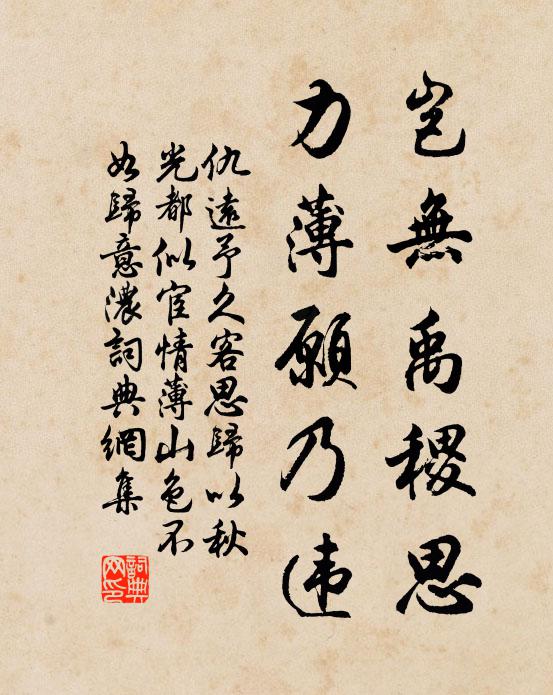 豈無禹稷思
力薄願乃违
仇遠予久客思歸以秋
光都似宦情薄山色不
如歸意濃詞典網集
詞典网印